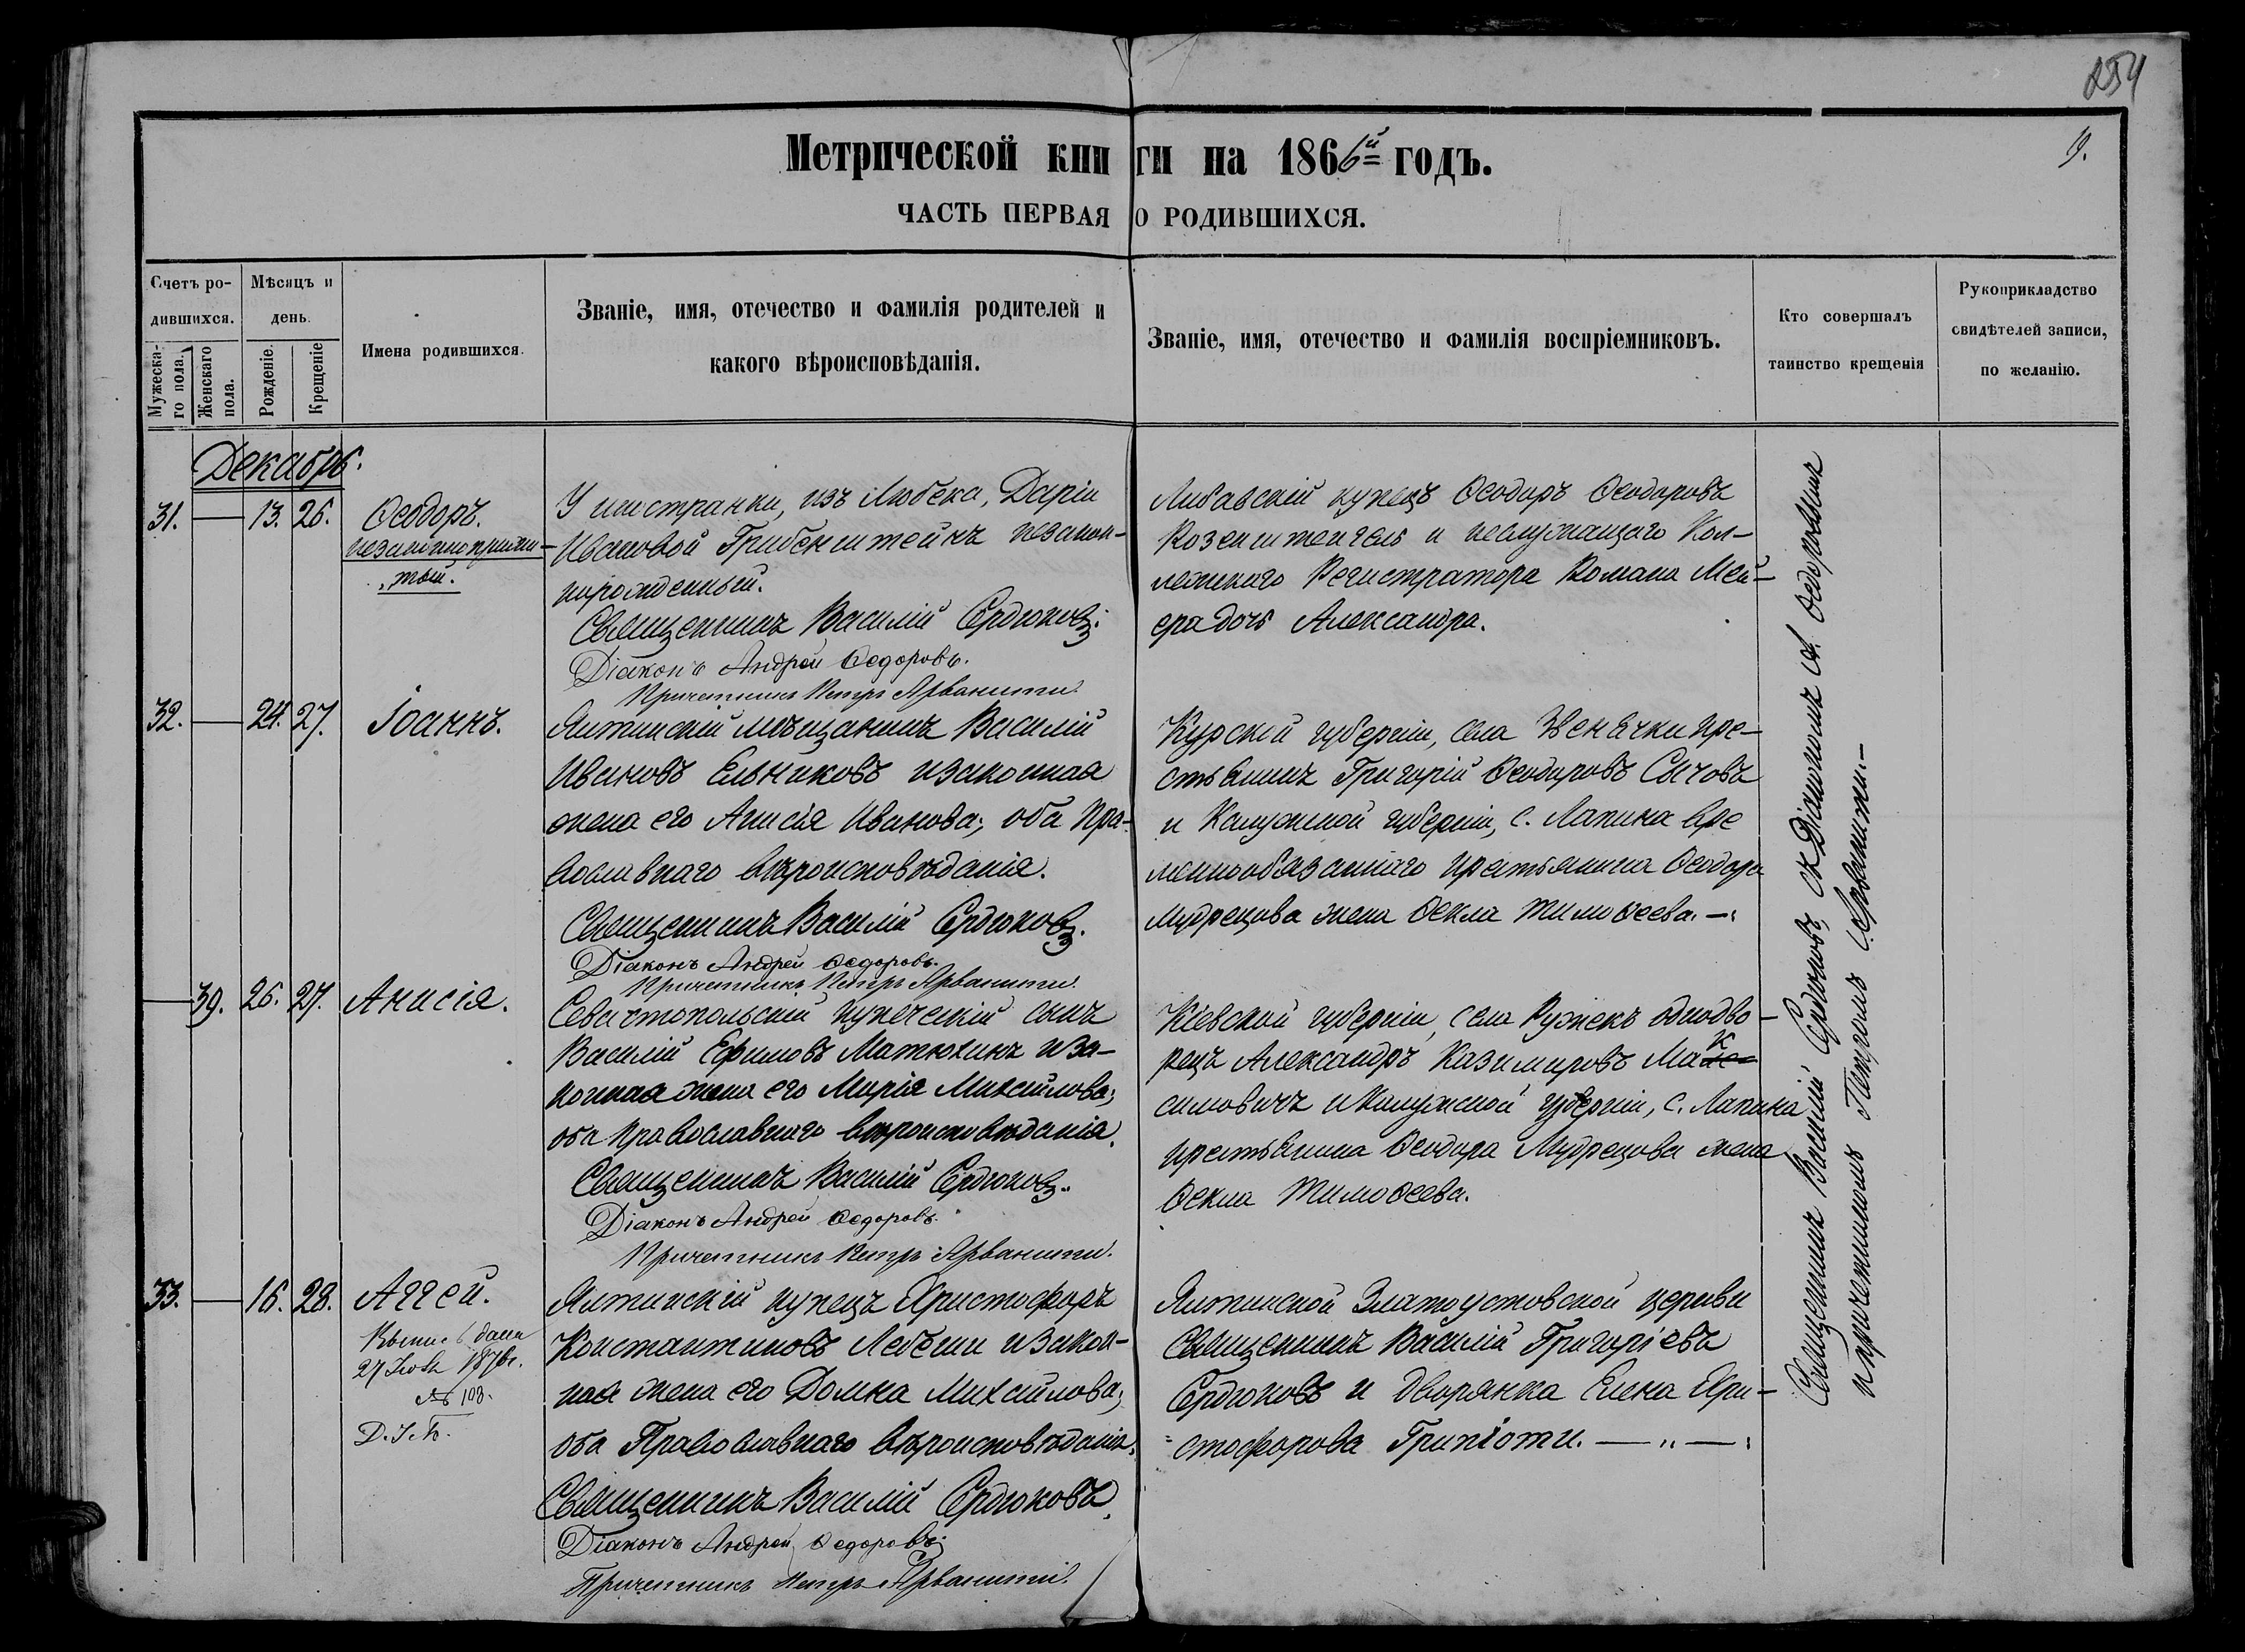 254
9.
Метрической книги на 1866й годъ.
ЧАСТЬ ПЕРВАЯ О РОДИВШИХСЯ.
Счетъ ро-
дившихся.
Мужеска-
го пола.
Женскаго
пола.
Мѣсяцъ и
день.
Рожденіе.
Крещеніе
Имена родившихся.
Званіе, имя, отечество и фамилія родителей и
какого вѣроисповѣданія.
Званіе, имя, отечество и фамилія воспріемниковъ.
Кто совершалъ
таинство крещенія
Рукоприкладство
свидѣтелей записи,
по желанію.
Декабрь.
31. — 13. 26. Ѳеодоръ.
тый.
У инстранки, изъ Любека, Даріи
Ивановой Грибенштейнъ незакон-
норожденный.
Священникъ Василій Сердюковъ.
Діаконъ Андрей Ѳедоровъ.
Причетникъ Петръ Арванити.
Либавскій купецъ Ѳеодоръ Ѳеодоровъ
и неслужащаго Кол-
лежскаго Регистратора Романа Мей-
ера дочь Александра.
32. — 24. 27. Іоаннъ.
Ялтинскій мѣщанинъ Василій
Ивановъ Ельниковъ и законная
жена его Анисія Иванова; оба Пра-
вославнаго вѣроисповѣданія.
Священникъ Василій Сердюковъ.
Діаконъ Андрей Ѳедоровъ.
Причетникъ Петръ Арванити.
Курской губерніи, села Звенячки кре-
стьянинъ Григорій Ѳеодоровъ Сычовъ
и Калужской губерніи, с. Лапина вре
меннообязаннаго крестьянина Ѳеодора
Мудрецова жена Ѳекла Тимоѳеева. —
— 39. 26. 27. Анисія.
Севастопольскій купеческій сынъ
Василій Ефимовъ Матюхинъ и за-
конная жена его Марія Михайлова;
оба Православнаго вѣроисповѣданія.
Священникъ Василій Сердюковъ.
Діаконъ Андрей Ѳедоровъ.
Причетникъ Петръ Арванити.
Кіевской губерніи, села Ружекъ однодво-
рецъ Александръ Казимировъ Мак
симовичъ и Калужской губерніи, с. Лапина
крестьянина Ѳеодора Мудрецова жена
Ѳекла Тимоѳеева.
33. — 16. 28. Аггей.
дана
1876г.
№ 103.
Ялтинскій купецъ Христофоръ
Константиновъ Лебеши и закон-
ная жена его Домна Михайлова;
оба Православнаго вѣроисповѣданія.
Священникъ Василій Сердюковъ.
Діаконъ Андрей Ѳедоровъ.
Причетникъ Петръ Арванити.
Ялтинской Златоустовской церкви
Священникъ Василій Григоріевъ
Сердюковъ и Дворянка Елена Хри-
стофорова Грипіоти. — " —
Священникъ Василій Сердюковъ, съ Діакономъ А. Ѳедоровымъ
и причетникомъ Петромъ Арванити. —